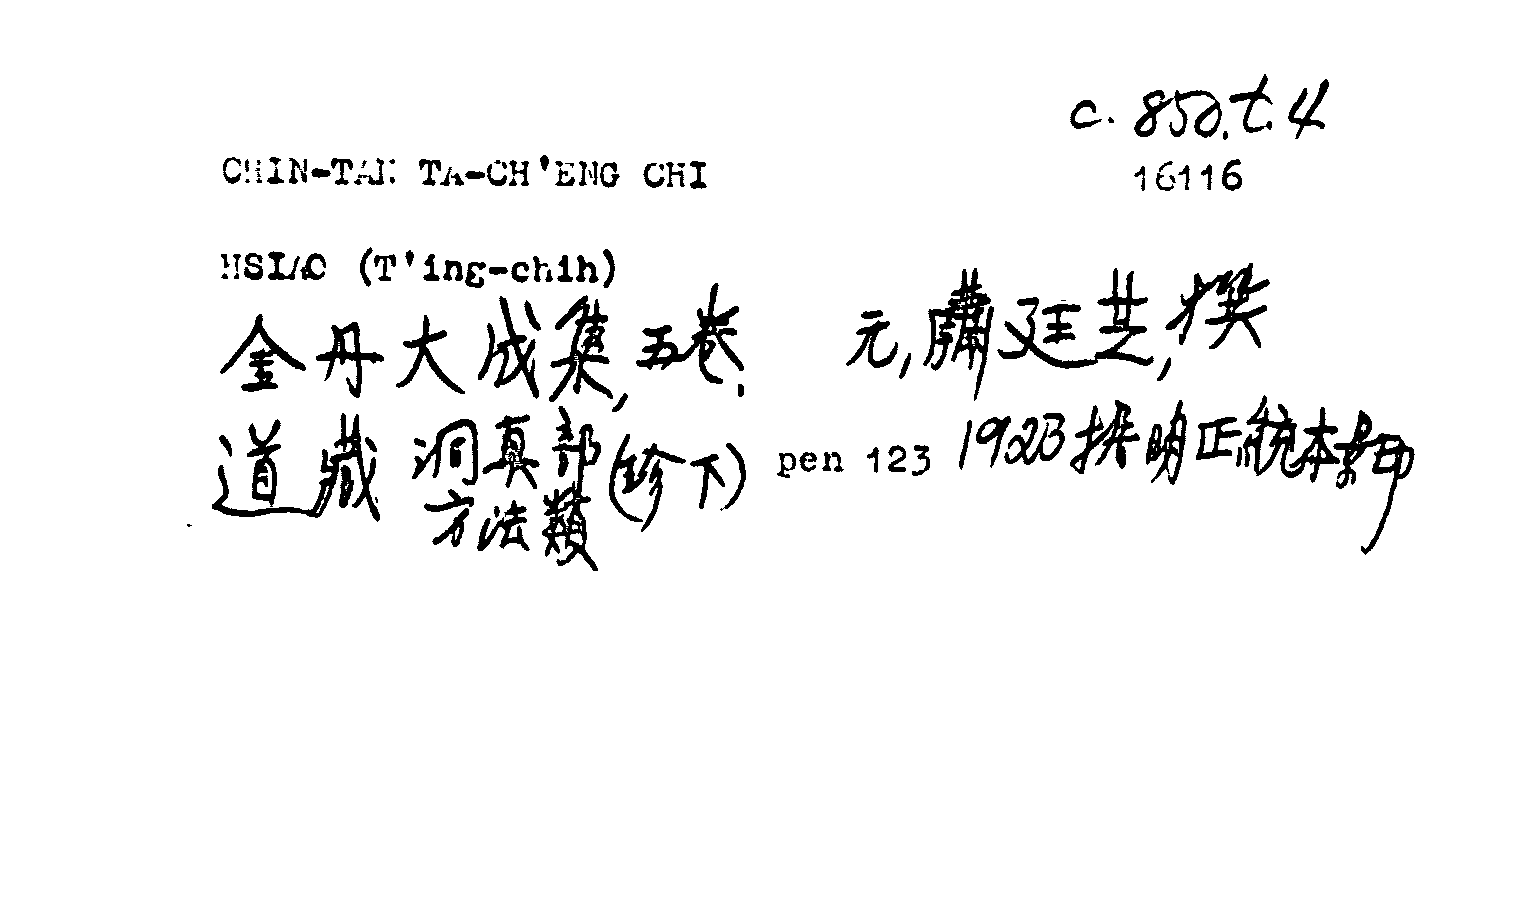 c. 850.t.4
CHIN-TAN TA-CH'ENG CHI
16116
HSIAO (T'ing-chih)
金丹大成集, 五卷. 元, 蕭廷芝, 撰
道藏 洞真部 (珍下) pen 123 1923 據明正統本景印
方法類